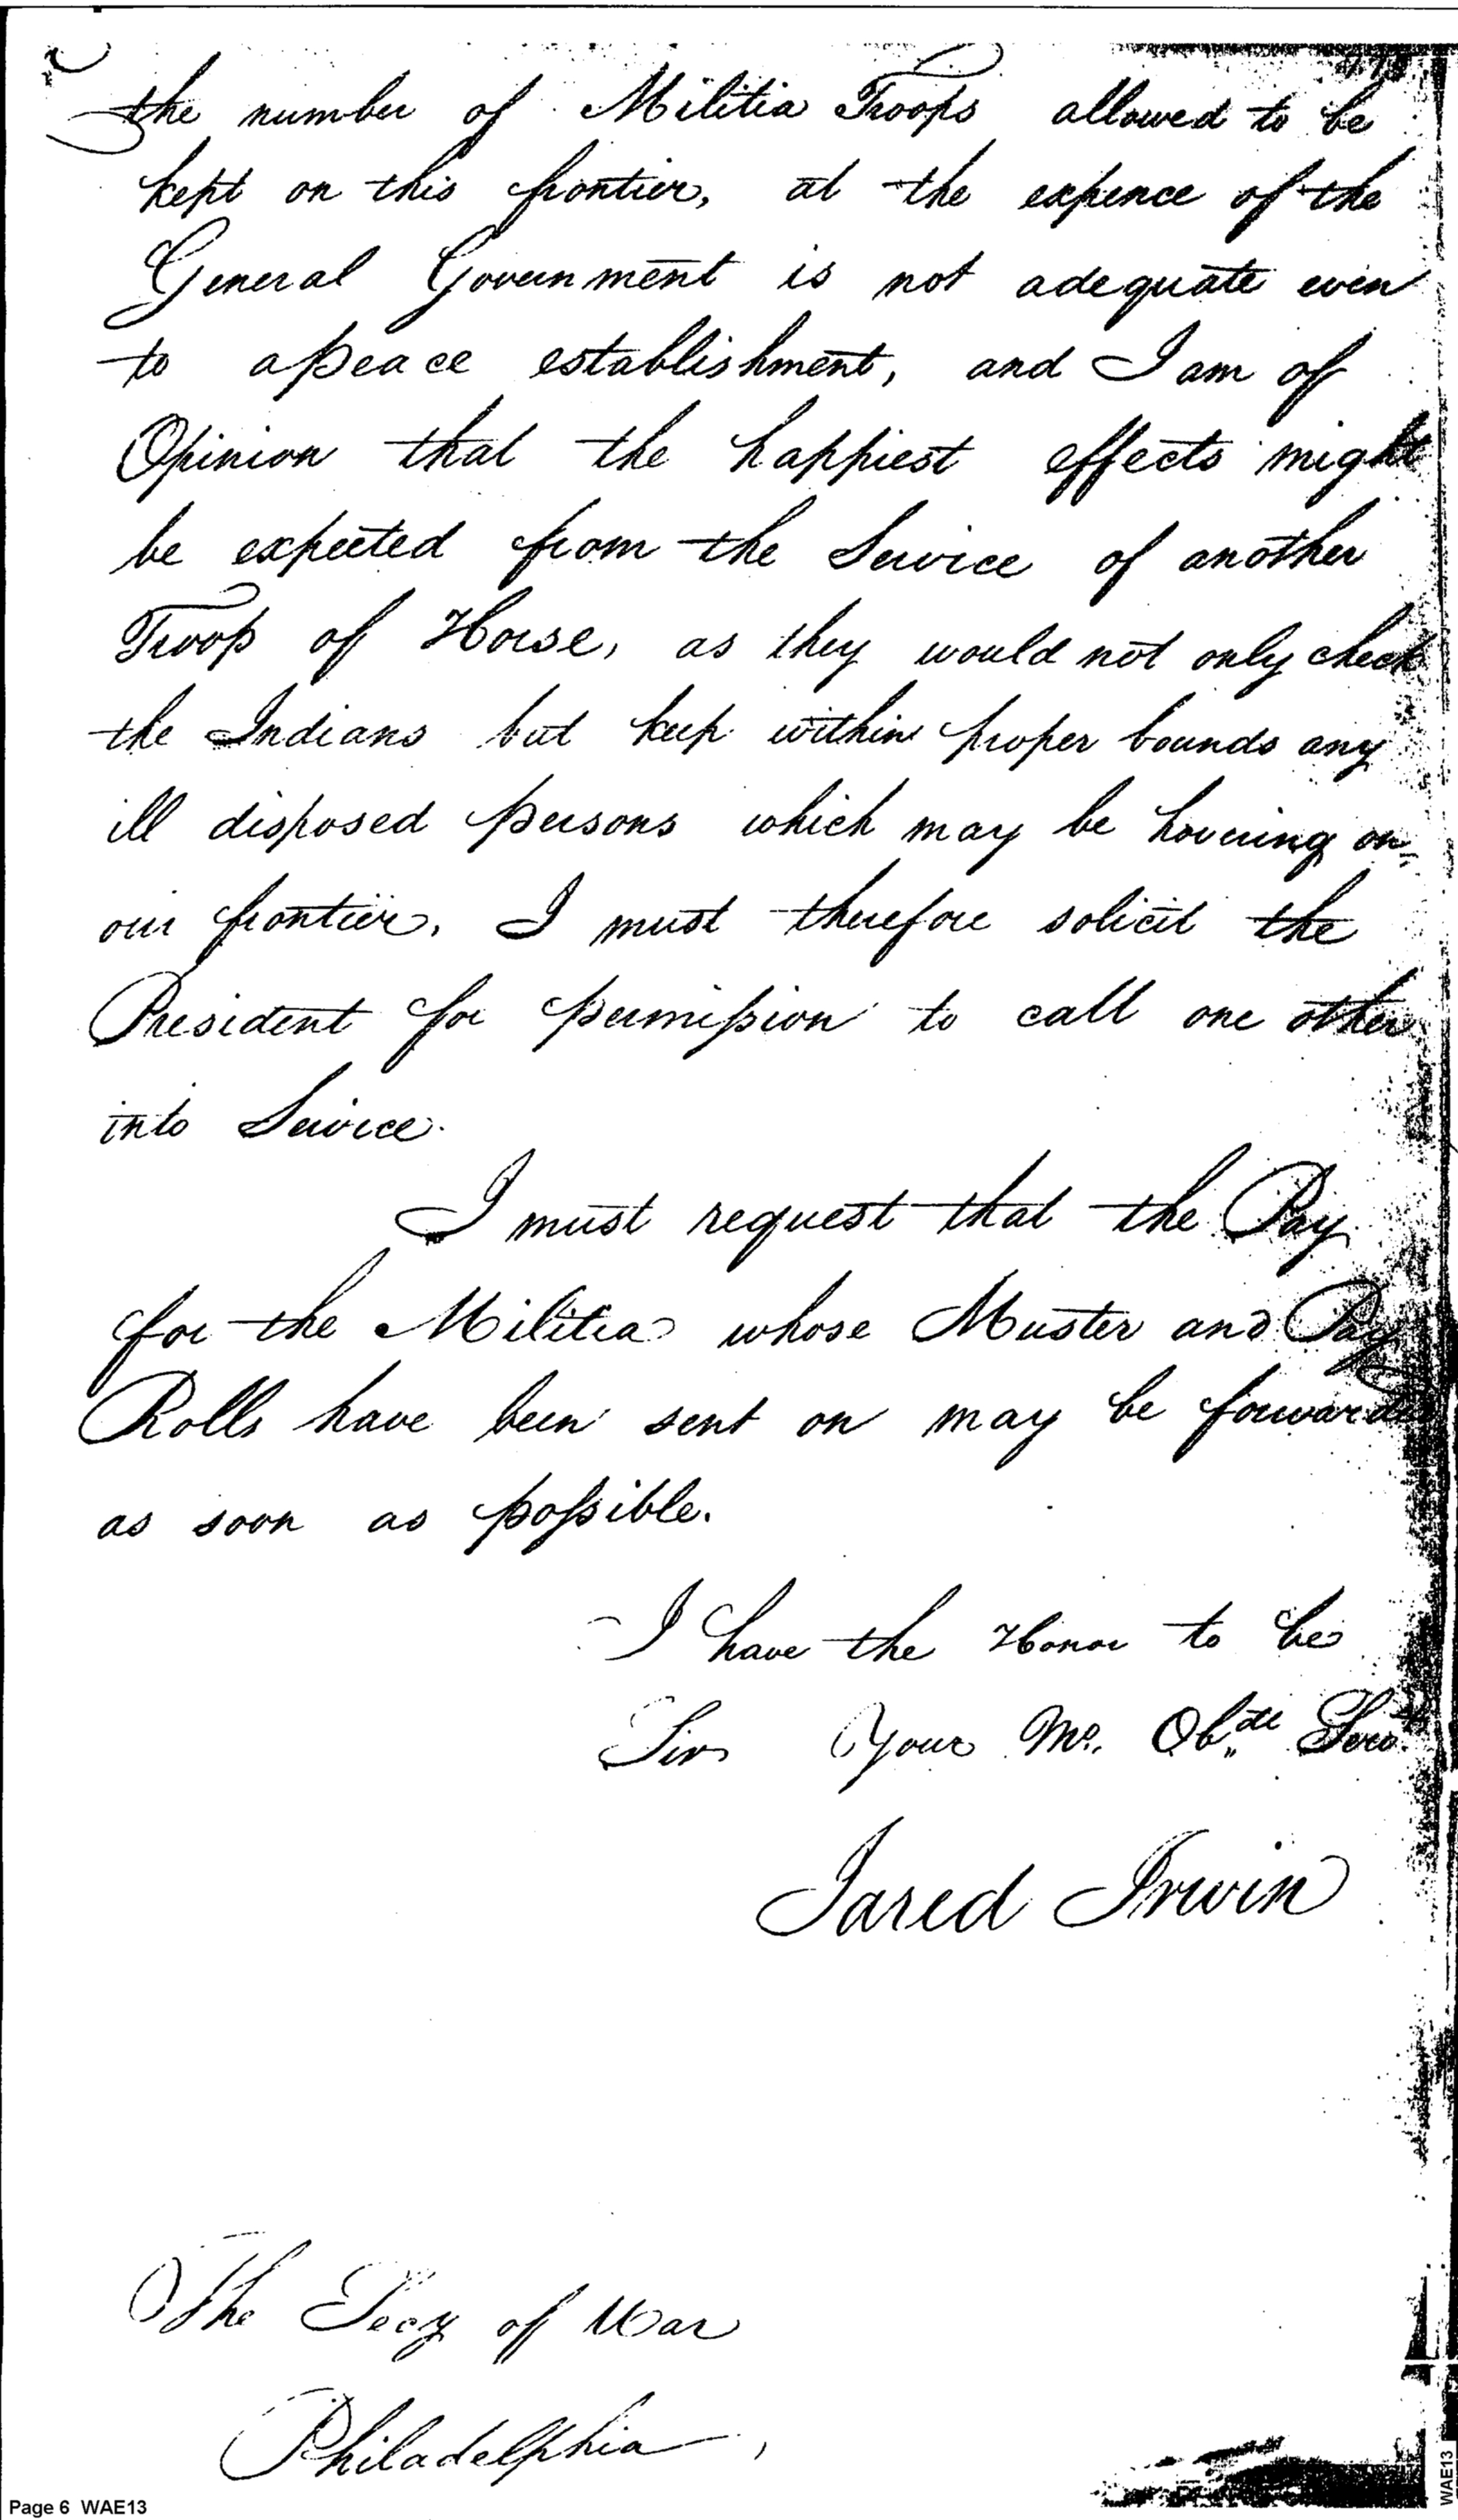 the number of Militia Troops allowed to be
kept on this frontier, at the expence of the
General Government is not adequate even
to a peace establishment, and I am of
Opinion that the happiest effects might
be expected from the Service of another
Troop of Horse, as they would not only check
the Indians but keep within proper bounds any
ill disposed persons which may be hovering on
our frontier. I must therefore solicit the
President for permission to call one other
into Service.
I must request that the Pay
for the Militia whose Muster and Pay
Rolls have been sent on may be forwarded
as soon as possible.
I have the Honor to be
Sir Your Mo. Ob.dt Serv.t
Jared Irwin
The Secy of War
Philadelphia,
Page 6 WAE13
WAE13